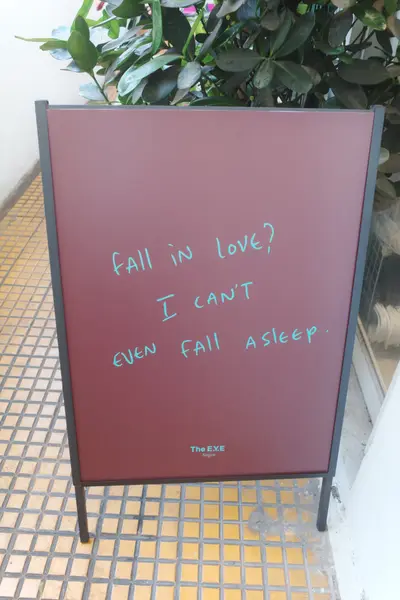 fAll iN LOVE?
I CAN'T
EVEN fAll ASlEEP.
The EYE